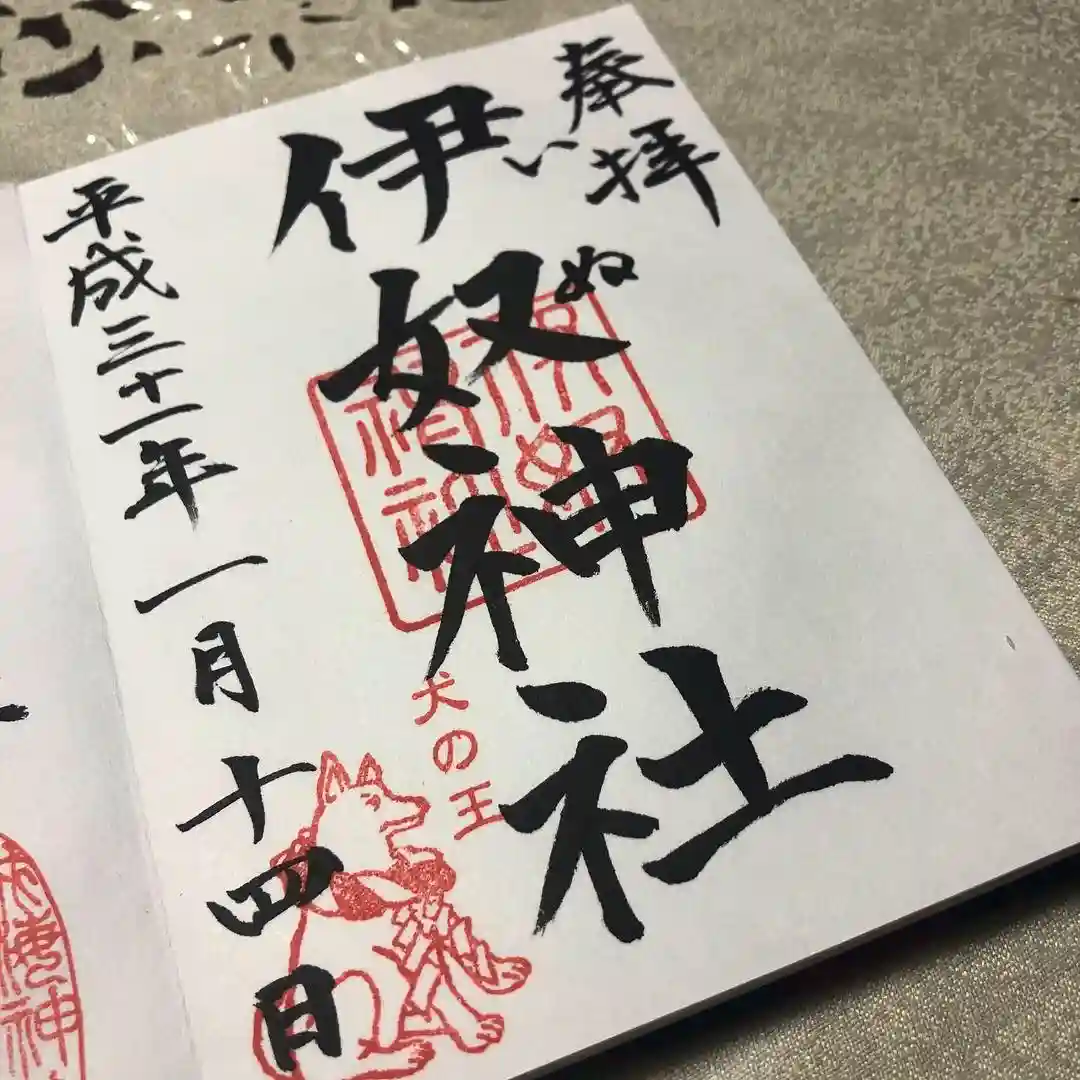 奉拝
いぬ
伊奴神社
犬の王
平成三十一年一月十四日